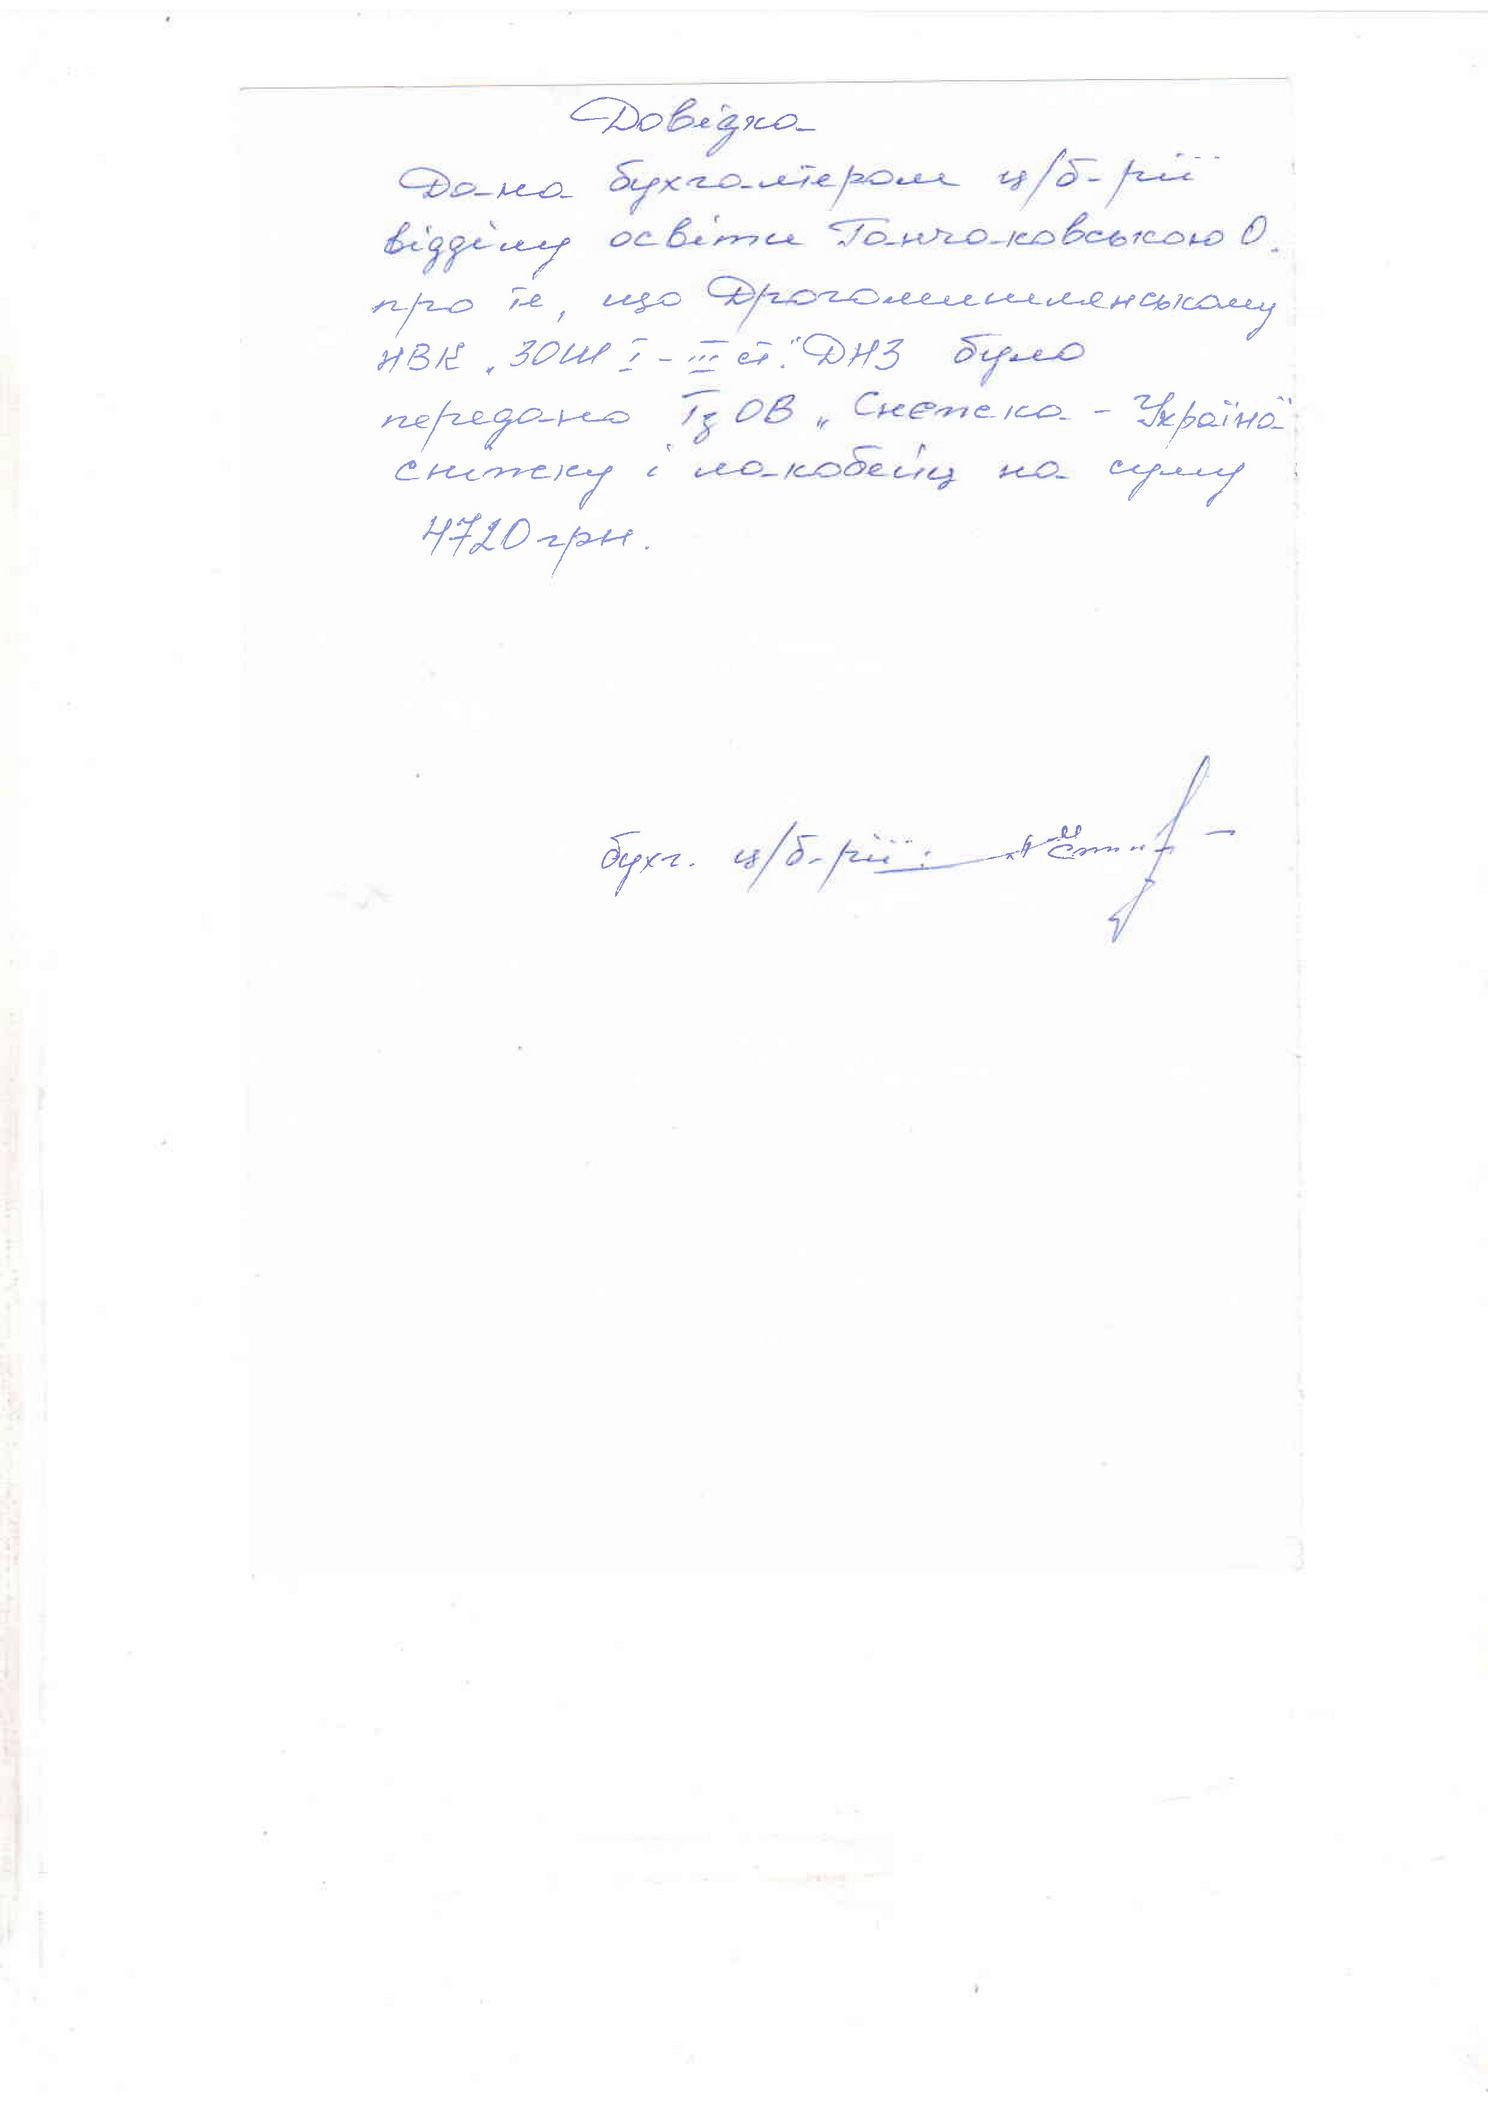 Довідка
Дана бухгалтером ц/б-рії
відділу освіти Ганчаковською О.
про те, що Дрогомишлянському
НВК „ЗОШ І-ІІІ ст." ДНЗ було
передано ТзОВ „Снєжка - Україна"
сніжку і лакобейц на суму
4720 грн.
бухг. ц/б-рії: